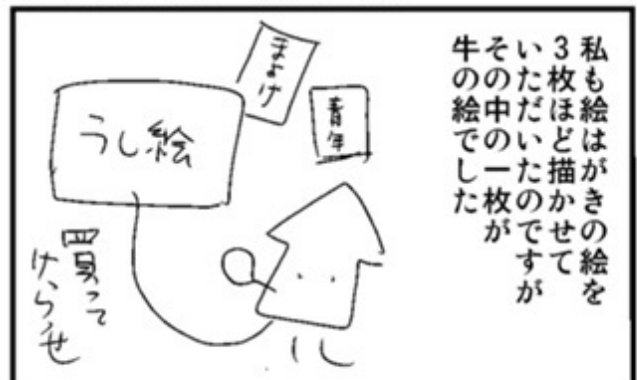 私も絵はがきの絵を
3枚ほど描かせて
いただいたのですが
その中の一枚が
牛の絵でした
まよけ
青年
うし絵
買って
けらせ